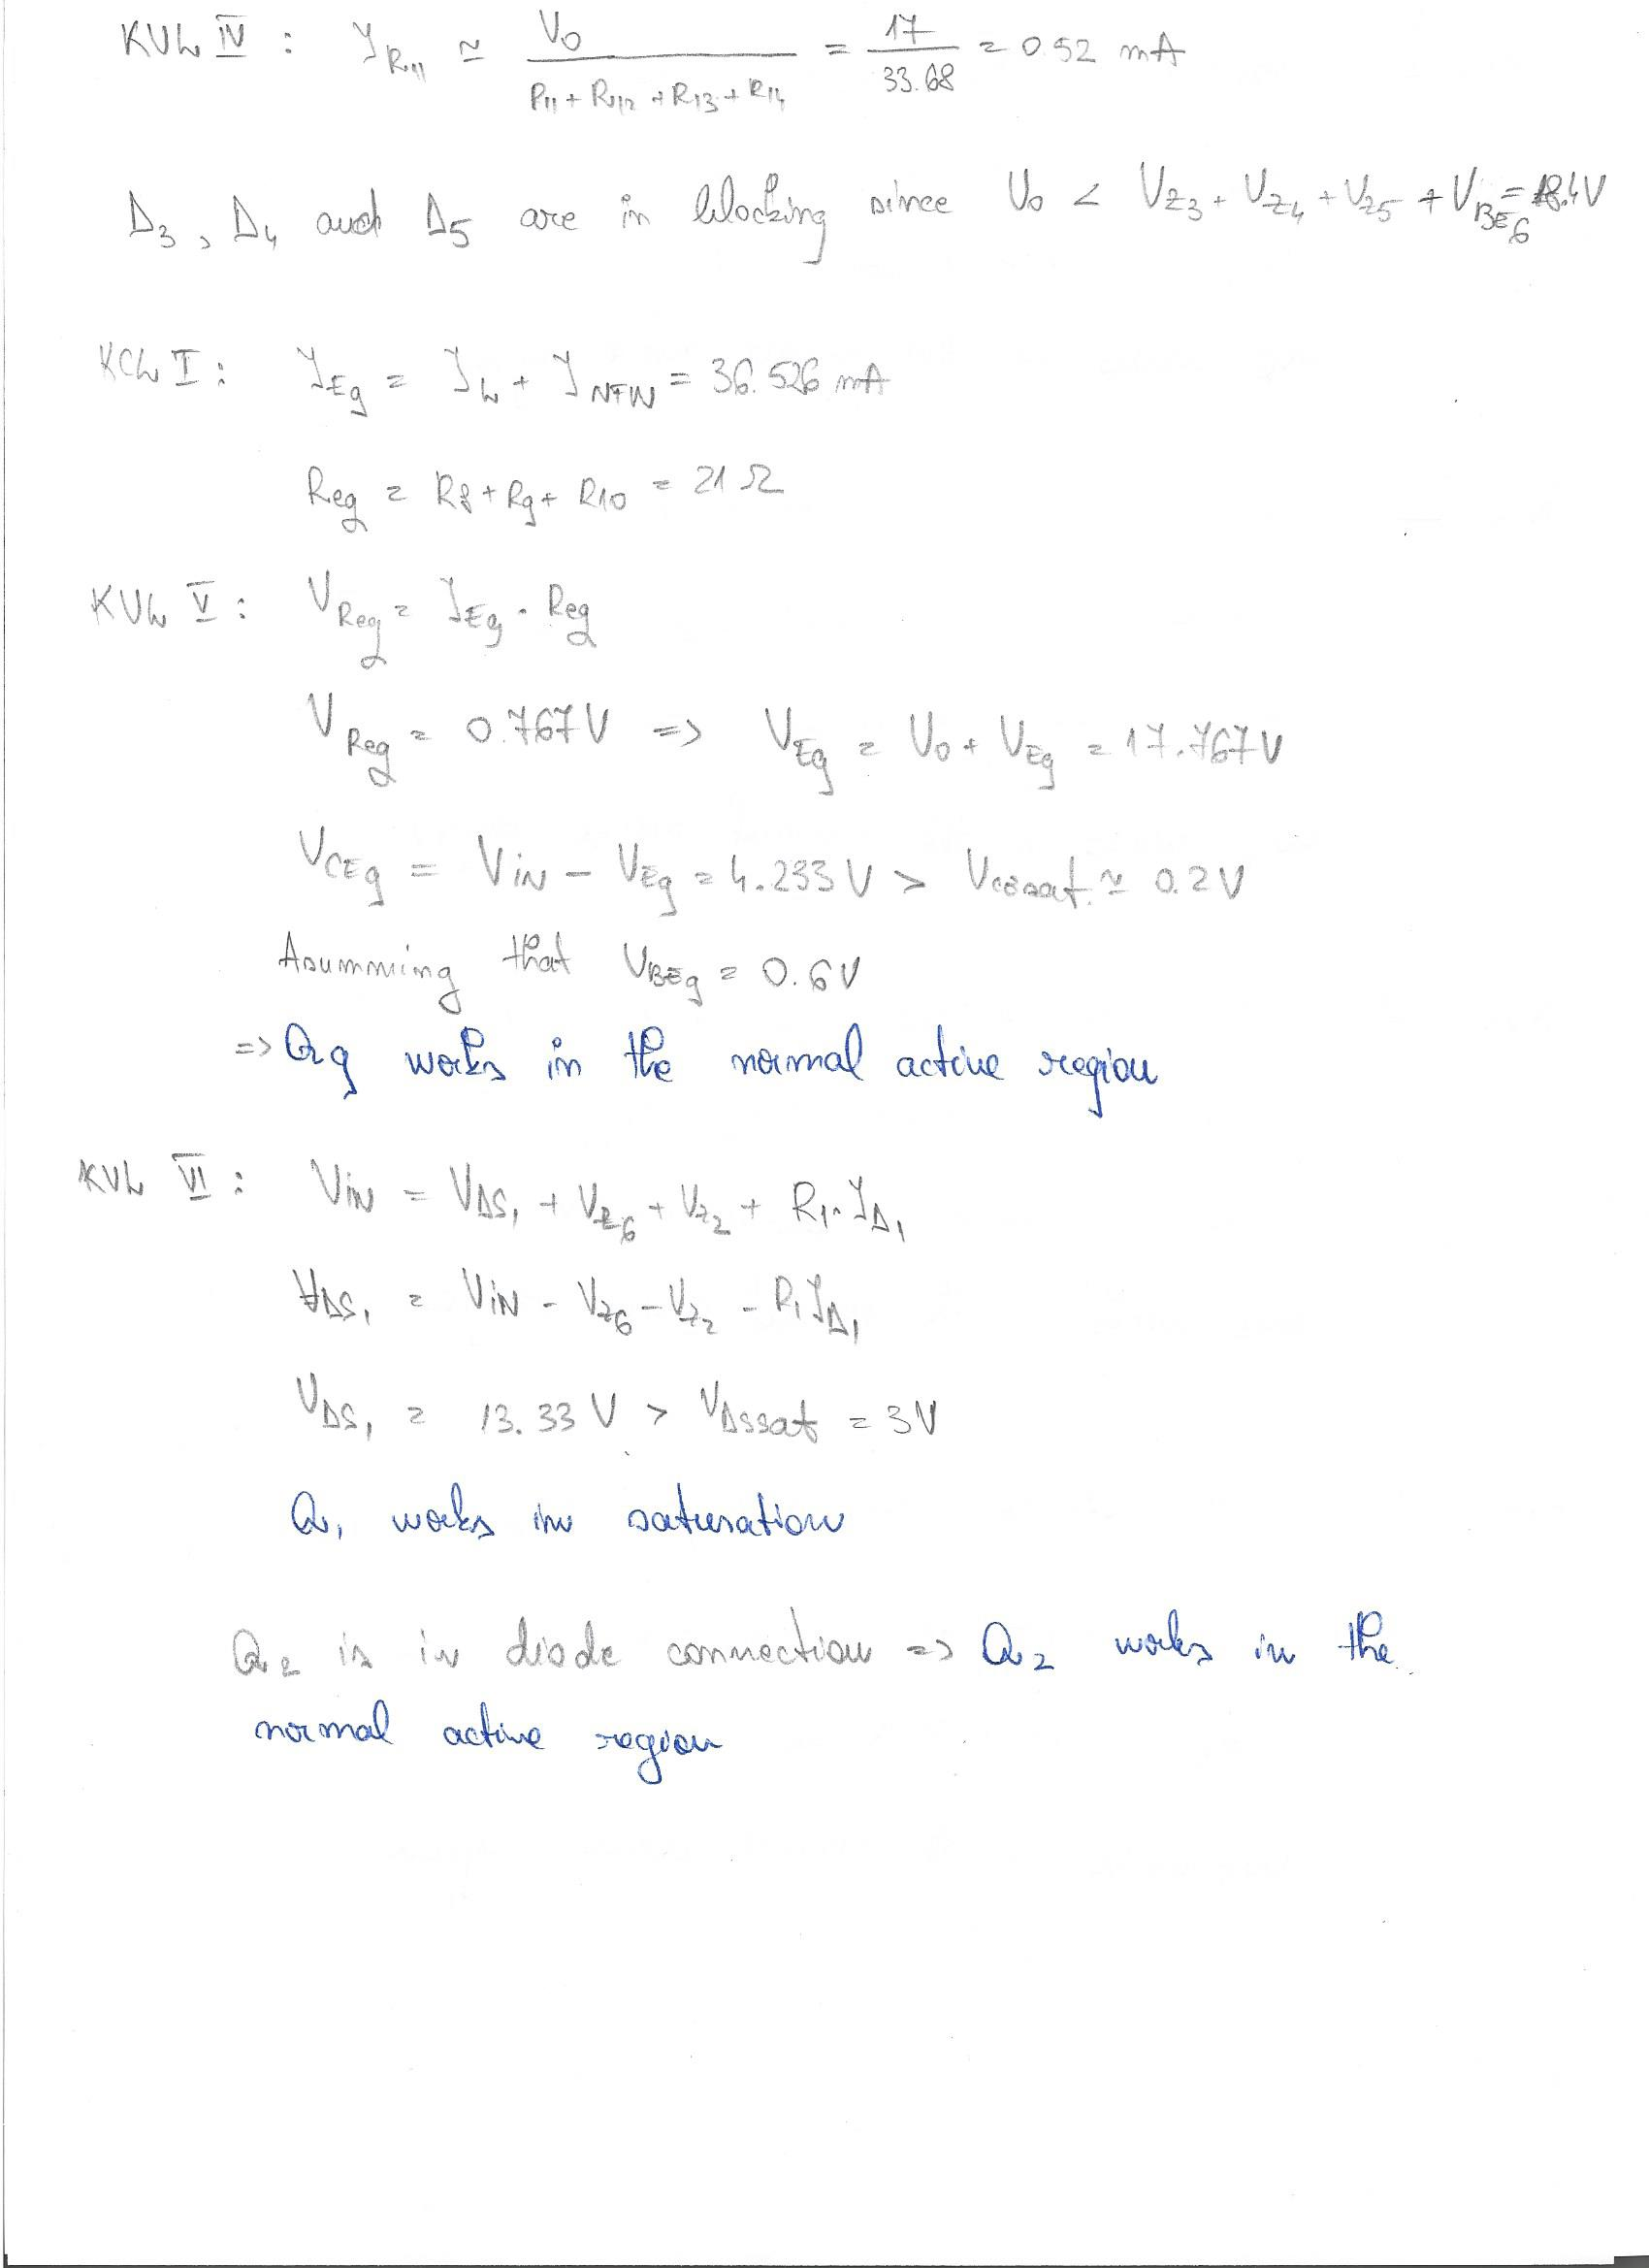 KVL IV : I_R11 ≃ V0 / (R11 + R12 + R13 + R14) = 17 / 33.68 = 0.52 mA
D3, D4 and D5 are in blocking since V0 < VZ3 + VZ4 + VZ5 + VBE6 = 18.4V
KCL I : IE9 = IL + INFW = 36.526 mA
Reg = R8 + R9 + R10 = 21 Ω
KVL V : VReg = IE9 · Reg
VReg = 0.767V => VE9 = V0 + VE9 = 17.767V
VCE9 = VIN − VE9 = 4.233V > VCEsat ≃ 0.2V
Asumming that VBE9 = 0.6V
=> Q9 works in the normal active region
KVL VI : VIN = VDS1 + VZ6 + VZ2 + R1·ID1
VDS1 = VIN − VZ6 − VZ2 − R1ID1
VDS1 = 13.33V > VDSsat = 3V
Q1 works in saturation
Q2 is in diode connection => Q2 works in the
normal active region